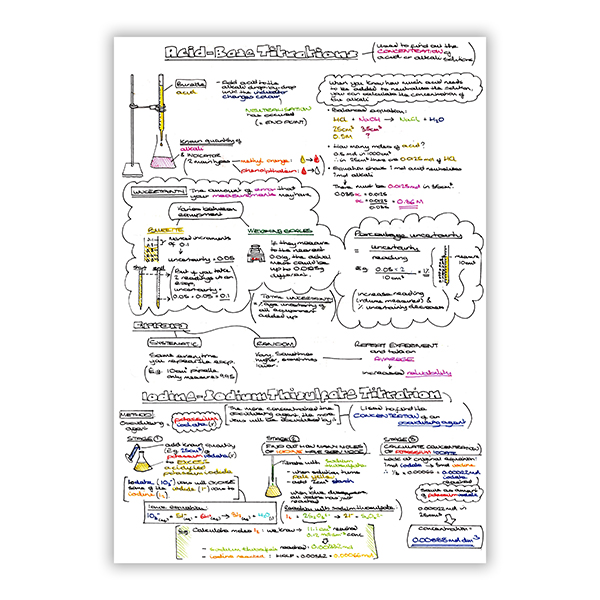 Acid-Base Titrations
Used to find out the
CONCENTRATION of
acid or alkali solutions
Burette
acid
- Add acid to the
alkali drop-by-drop
until the indicator
changes colour
NEUTRALISATION
has occurred
(= END POINT)
Known quantity of
alkali
& INDICATOR
(2 main types
methyl orange:
phenolphthalein:
When you know how much acid needs
to be added to neutralise the solution,
you can calculate the concentration of
the alkali
• Balanced equation:
HCl + NaOH → NaCl + H₂O
25cm³ 35cm³
0.5M ?
• How many moles of acid?
0.5 mol in 1000cm³
∴ in 25cm³ there are 0.0125 mol of HCl
• Equation shows 1 mol acid neutralises
1 mol alkali
There must be 0.0125 mol in 35cm³
0.035
0.0125
0.035
0.36M
UNCERTAINTY
The amount of error that
your measurements may have
Varies between
equipment
BURETTE
Marked increments
of 0.1
uncertainty = 0.05
start end
But if you take
2 readings in an
uncertainty =
0.05 + 0.05 = 0.1
WEIGHING SCALES
If they measure
to the nearest
0.01g, the actual
mass could be
up to 0.005g
different.
Percentage uncertainty
= uncertainty
reading
Eg. 0.05 × 2
10cm³
= 1%
means
10cm³
increase reading
(volume measured) &
% uncertainty decreases
TOTAL UNCERTAINTY
= % age uncertainty of
all equipment
added up
Errors
SYSTEMATIC
Same every time
you repeat the exp.
(E.g. 10cm³ pipette
only measures 9.95
RANDOM
Vary. Sometimes
higher, sometimes
lower.
REPEAT EXPERIMENT
and take an
AVERAGE
increases reliability
Iodine-Sodium Thiosulfate Titration
METHOD
Oxidising
agent
potassium
iodate(V)
The more concentrated the
oxidising agent, the more
ions will be oxidised by it
Used to find the
CONCENTRATION of an
oxidising agent
STAGE 1
add known quantity
(E.g. 25cm³) of
potassium iodate(V)
to EXCESS
acidified
potassium iodide
Iodate (IO₃⁻) ions will oxidise
some of the iodide (I⁻) ions to
iodine (I₂)
Ionic equation:
STAGE 2
FIND OUT HOW MANY MOLES
OF IODINE HAVE BEEN MADE
Titrate with sodium
thiosulfate
when solution turns
pale yellow
add 2cm³ starch
when blue disappears
all iodine has just
reacted
Reaction with sodium thiosulfate:
I₂ + 2S₂O₃²⁻ → 2I⁻ + S₄O₆²⁻
Eg. Calculate moles I₂: we know → 11.1cm³ reacted
0.12 mol dm⁻³ conc
STAGE 3
CALCULATE CONCENTRATION
OF POTASSIUM IODATE
Look at original equation
1 mol iodate → 3 mol iodine
Same as moles
of potassium iodate
0.00022 mol in
25cm³
concentration =
0.0088 mol dm⁻³